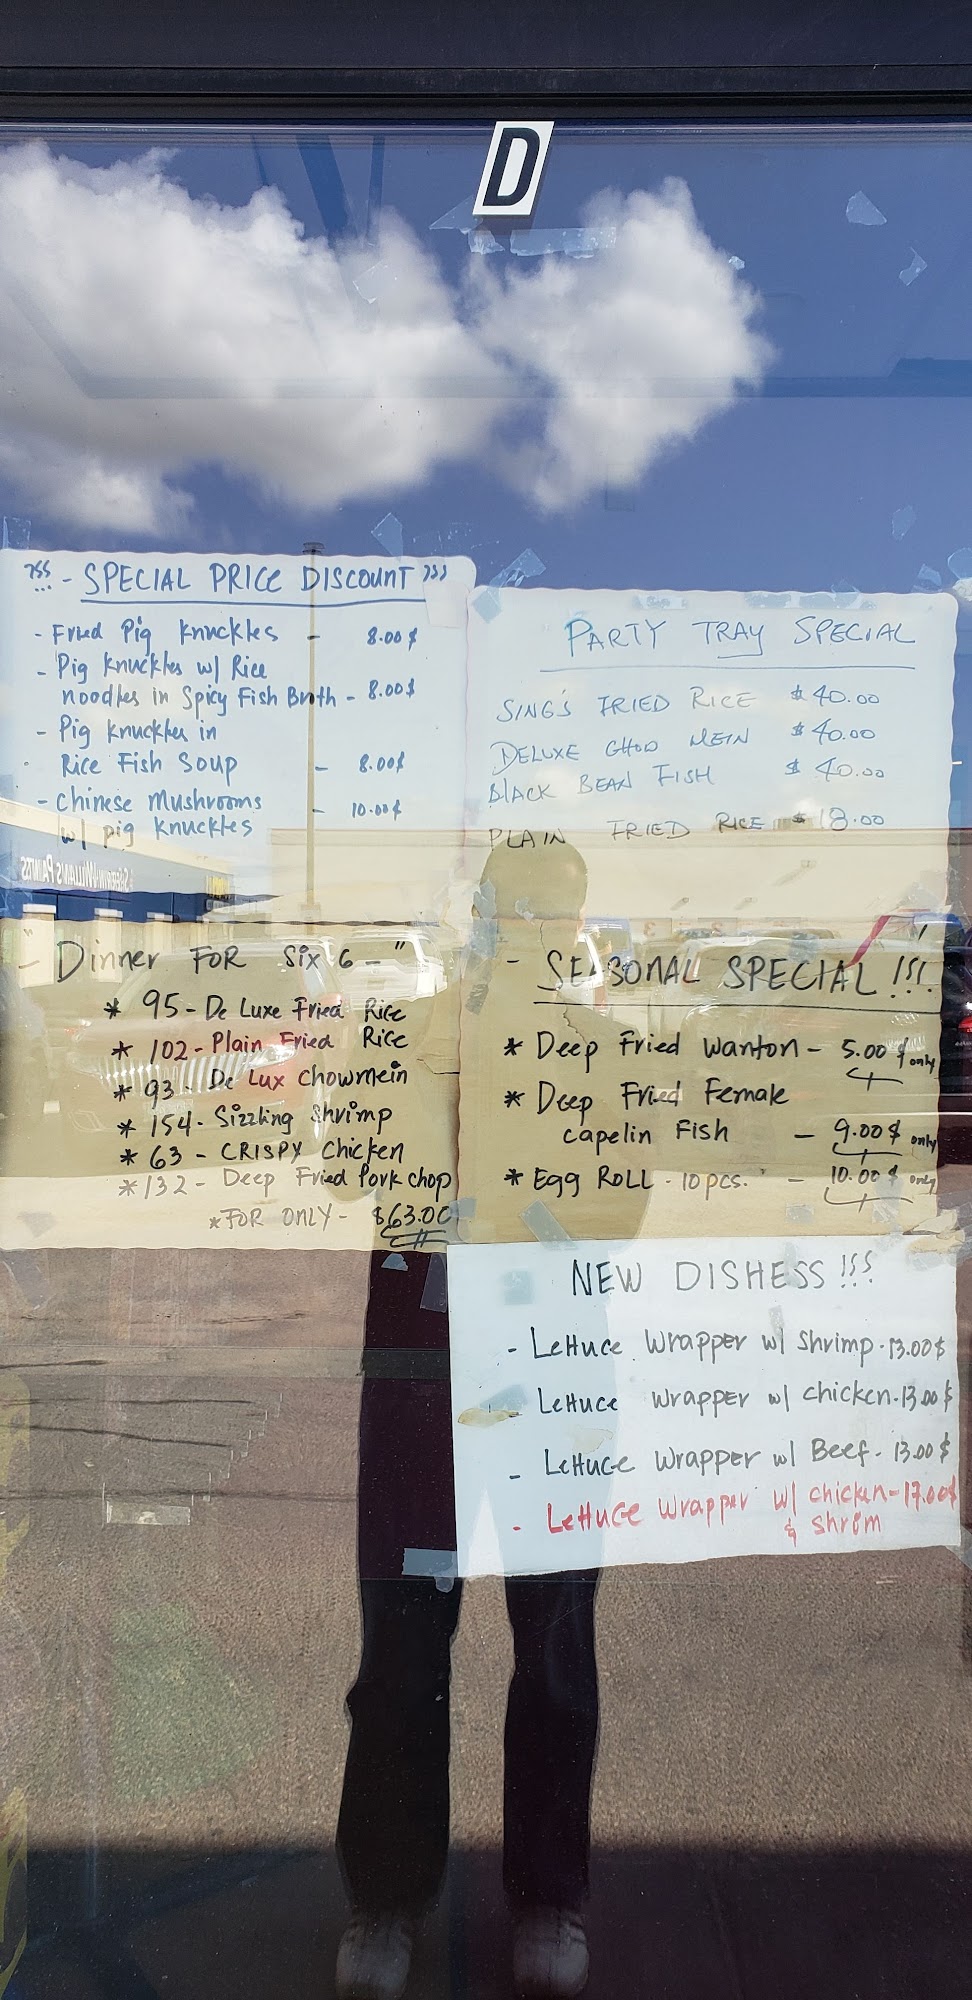 D
!!! - SPECIAL PRICE DISCOUNT !!!
- Fried Pig Knuckles - 8.00$
- Pig Knuckles w/ Rice
noodles in Spicy Fish Broth - 8.00$
- Pig Knuckles in
Rice Fish Soup - 8.00$
- Chinese Mushrooms - 10.00$
w/ pig Knuckles
PARTY TRAY SPECIAL
SING'S FRIED RICE $40.00
DELUXE CHOW MEIN $40.00
BLACK BEAN FISH $40.00
PLAIN FRIED RICE $18.00
SHERWIN-WILLIAMS PAINTS
" - Dinner FOR Six 6 - "
* 95 - De Luxe Fried Rice
* 102 - Plain Fried Rice
* 93 - De Lux Chowmein
* 154 - Sizzling Shrimp
* 63 - CRISPY Chicken
* 132 - Deep Fried Pork chop
* FOR ONLY - $63.00
- SEASONAL SPECIAL !!!
* Deep Fried Wanton - 5.00$ only
* Deep Fried Female
capelin Fish - 9.00$ only
* Egg Roll - 10 pcs. - 10.00$ only
NEW DISHESS !!!
- Lettuce Wrapper w/ Shrimp - 13.00$
- Lettuce Wrapper w/ Chicken - 13.00$
- Lettuce Wrapper w/ Beef - 13.00$
- Lettuce Wrapper w/ chicken - 17.00$
& shrim